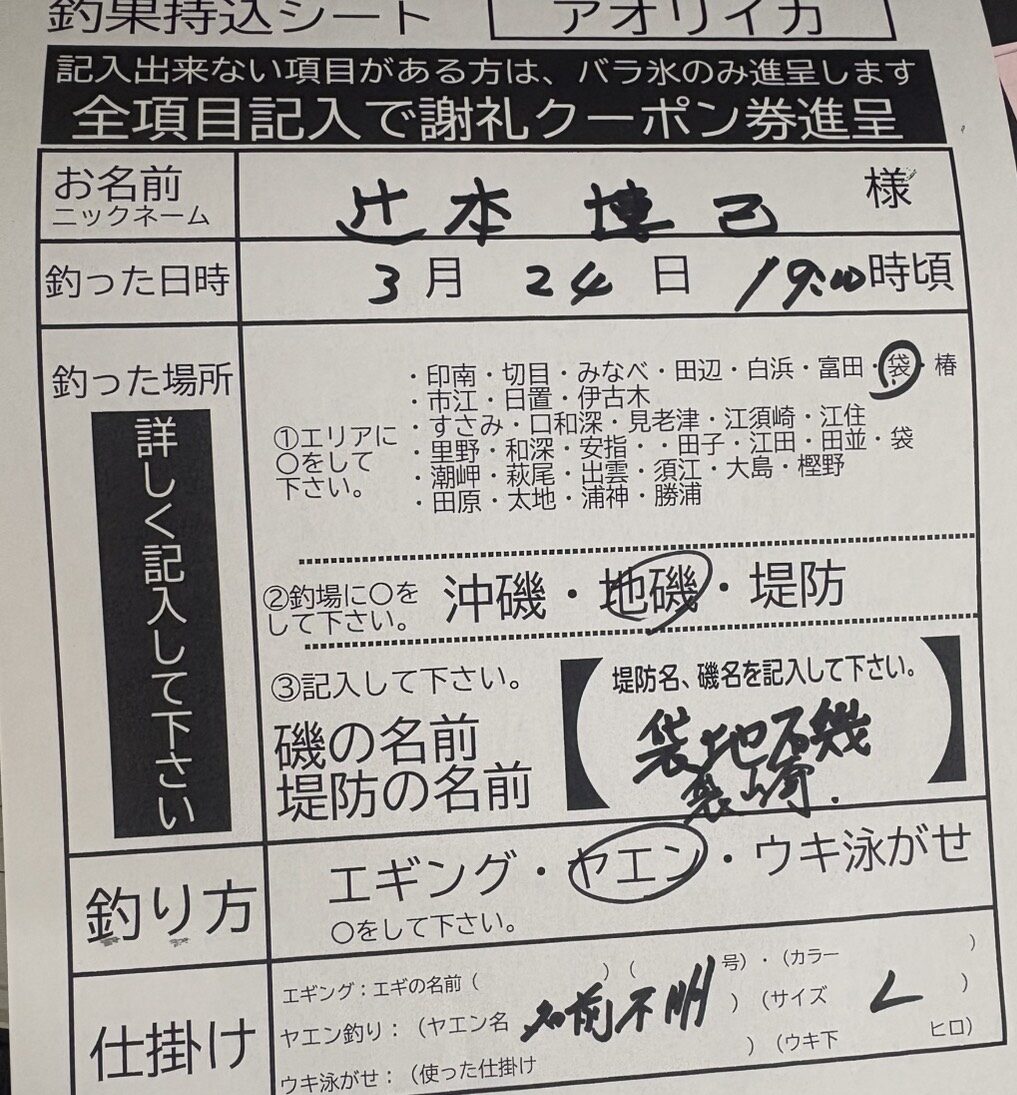 釣果持込シート アオリイカ
記入出来ない項目がある方は、バラ氷のみ進呈します
全項目記入で謝礼クーポン券進呈
お名前 辻本 博己 様
ニックネーム
釣った日時 3月 24日 19:00時頃
釣った場所
詳しく記入して下さい
①エリアに
〇をして
下さい。
・印南・切目・みなべ・田辺・白浜・富田・袋・椿
・市江・日置・伊古木
・すさみ・口和深・見老津・江須崎・江住
・里野・和深・安指・・田子・江田・田並・袋
・潮岬・萩尾・出雲・須江・大島・樫野
・田原・太地・浦神・勝浦
②釣場に〇を
して下さい。
沖磯・地磯・堤防
③記入して下さい。
磯の名前
堤防の名前
堤防名、磯名を記入して下さい。
袋地磯
釣り方 エギング・ヤエン・ウキ泳がせ
〇をして下さい。
仕掛け
エギング：エギの名前（ ）（ 号）・（カラー ）
ヤエン釣り：（ヤエン名 名前不明 ）（サイズ L ）
ウキ泳がせ：（使った仕掛け ）（ウキ下 ヒロ）